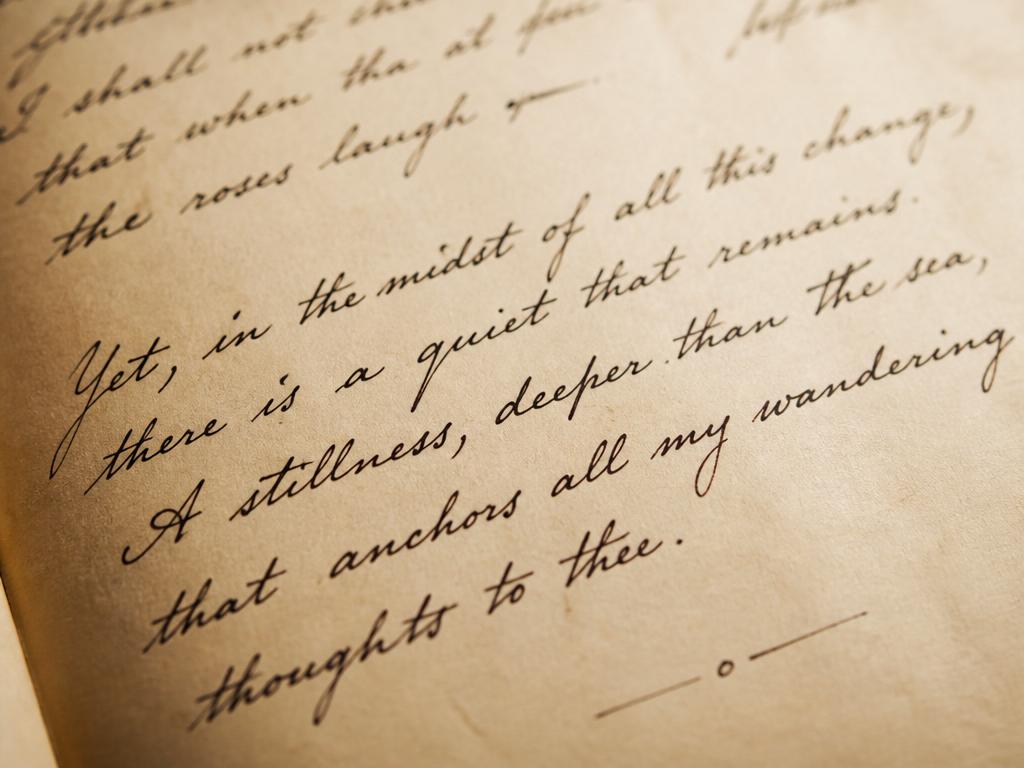 I shall not
that when tha at
the roses laugh —
Yet, in the midst of all this change,
there is a quiet that remains.
A stillness, deeper than the sea,
that anchors all my wandering
thoughts to thee.